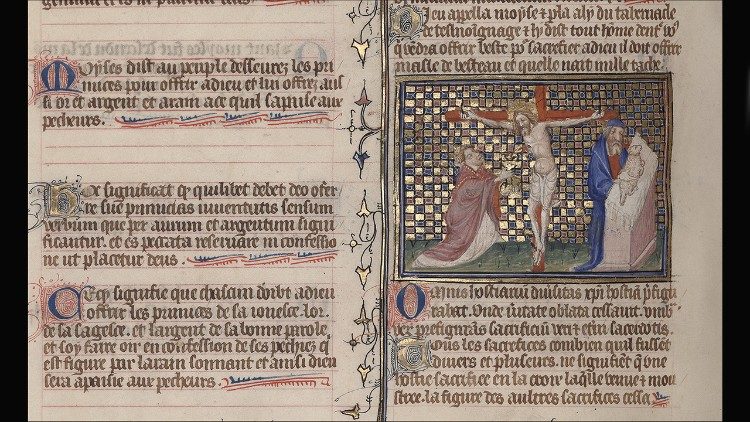 Moyses dist au peuple desseurez les pri
mices pour offrir a dieu et lui offrez aus
si or et argent et aram a ce quil sapaise aux
pecheurs.
Hoc significat q quilibet debet deo offer
re sue primicias iuventutis sensum
verbum que per aurum et argentum signi
ficantur. et es peccata reserare in confessio
ne ut placetur deus.
Cecy signifie que chascun doibt a dieu
offrir les primices de sa ionesce. lor.
de sa sagesce. et largent de sa bonne parole.
et soy faire oir en confession de ses pechiez q
est figure par laram sonnant et ainsi dieu
sera apaisie aux pecheurs.
Dieu apella moyse et pla a ly du tabernacle
de tesmoignage et ly dist tout home dent
offrir beste po sacrefice a dieu il doit offrir
masle de besteau et quelle nait nulle tache.
Omnis hostiarum diversitas xpi hostiam pfigu
rabat. Unde oblata cessavit.
prefiguras sacrificium veri et sacerdotis.
Tous les sacrefices combien quil fussent
divers et pluseurs. ne signifient q une
hostie sacrefice en la croix laquele venue et mou
stree. la figure des aultres sacrefices cessa